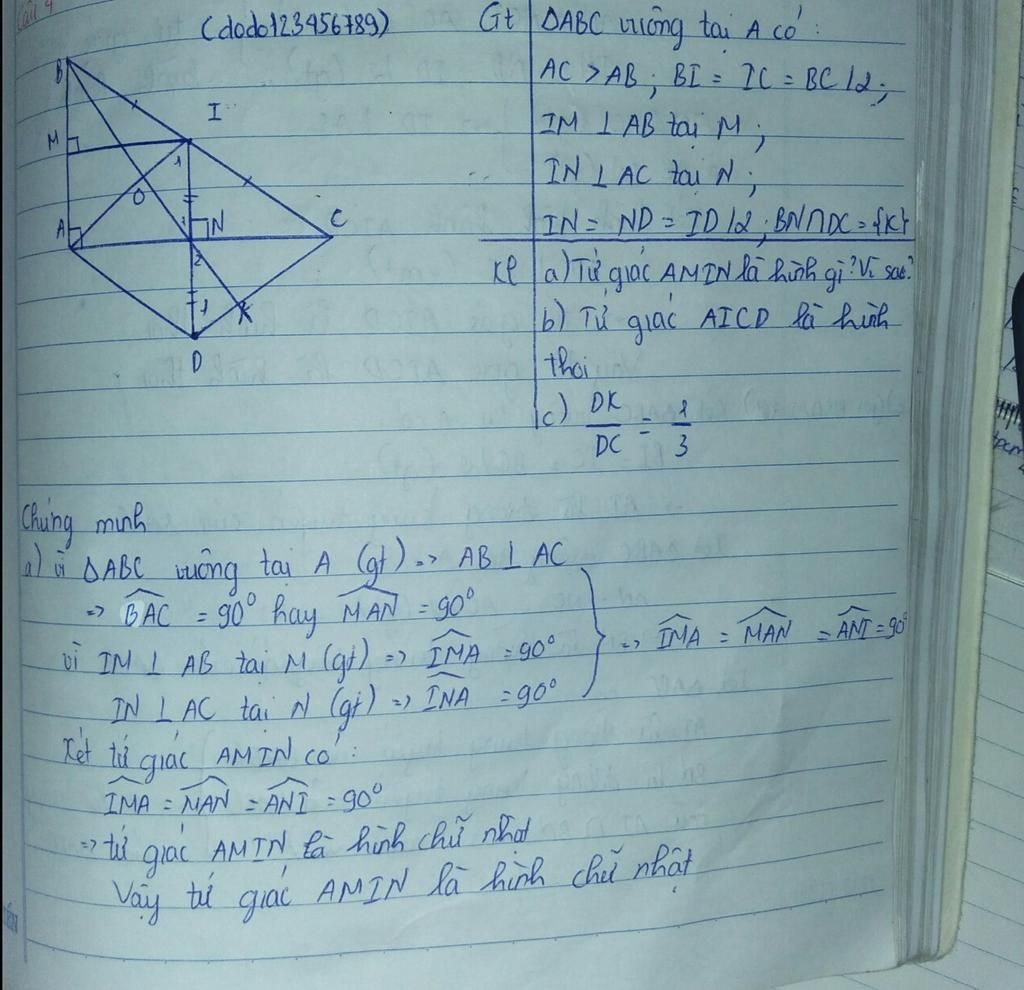 Câu 4
(dodo123456789)
Gt ΔABC vuông tại A có:
AC > AB; BI = IC = BC/2;
IM ⊥ AB tại M;
IN ⊥ AC tại N;
IN = ND = ID/2; BN∩DC = {K}
Kl a) Tứ giác AMIN là hình gì? Vì sao?
b) Tứ giác AICD là hình
thoi
c) DK/DC = 1/3
B
I
M
1
O
A
1
N
C
2
1
K
D
Chứng minh
a) Vì ΔABC vuông tại A (gt) => AB ⊥ AC
=> BAC = 90° hay MAN = 90°
Vì IM ⊥ AB tại M (gt) => IMA = 90°
IN ⊥ AC tại N (gt) => INA = 90°
=> IMA = MAN = ANI = 90°
Xét tứ giác AMIN có:
IMA = MAN = ANI = 90°
=> tứ giác AMIN là hình chữ nhật
Vậy tứ giác AMIN là hình chữ nhật